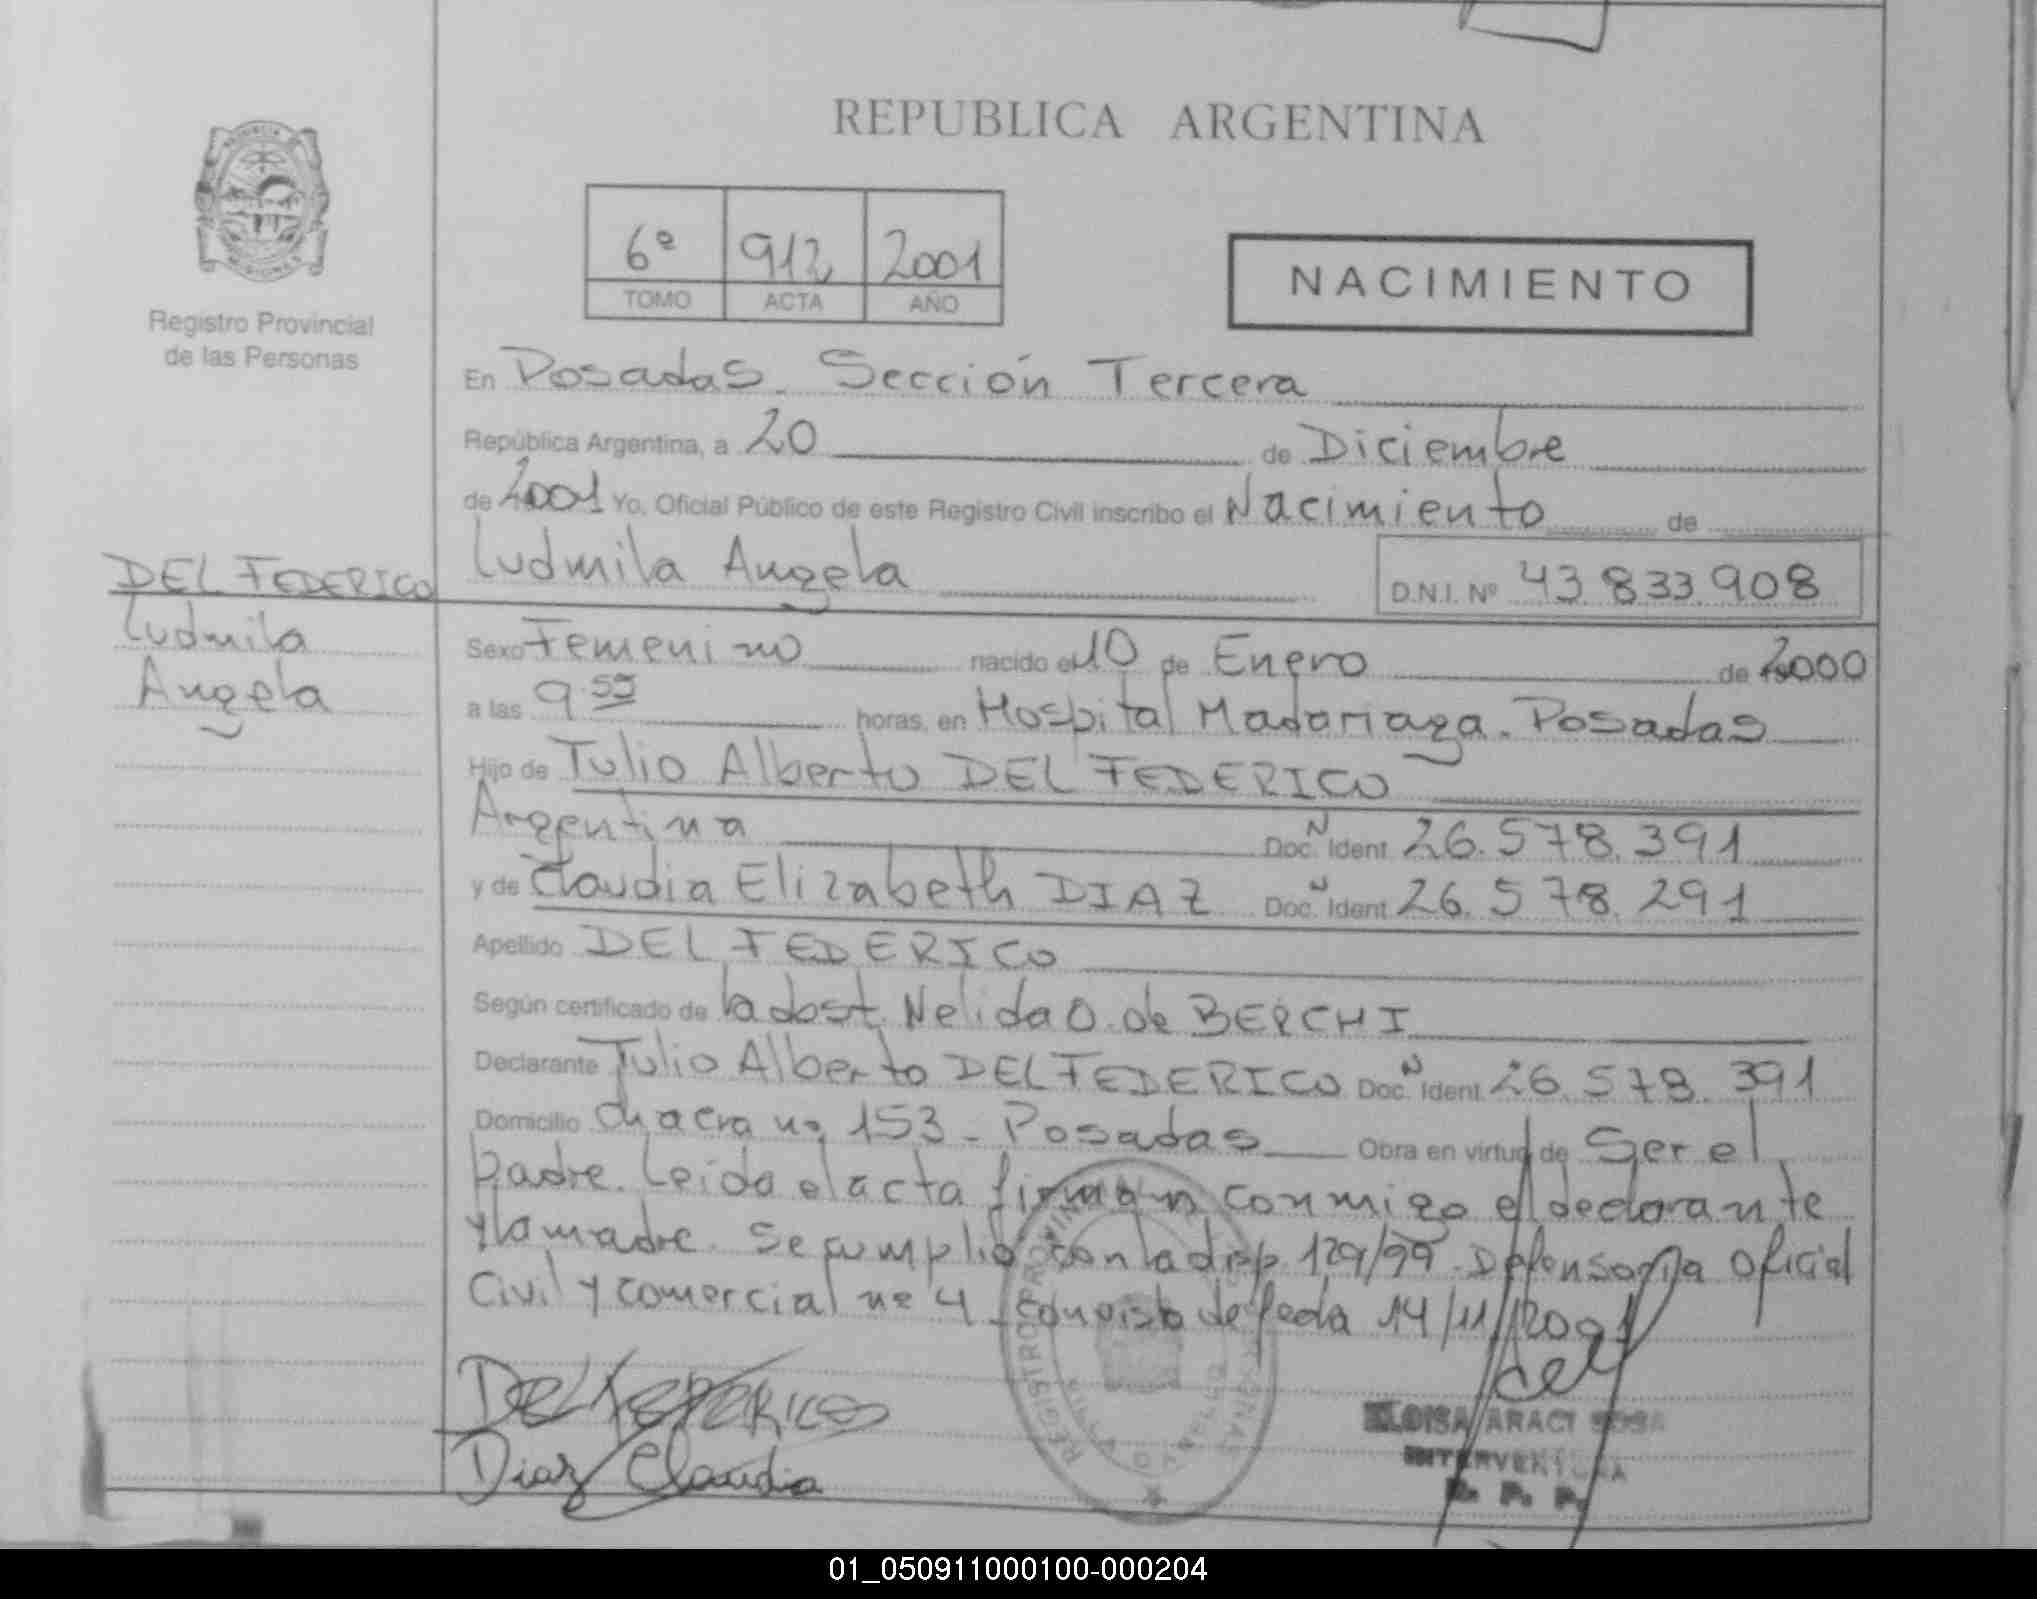 REPUBLICA ARGENTINA
Registro Provincial
de las Personas
6º 912 2001
TOMO ACTA AÑO
NACIMIENTO
En Posadas. Sección Tercera
República Argentina, a 20 de Diciembre
de 2001 Yo, Oficial Público de este Registro Civil inscribo el Nacimiento de
Ludmila Angela D.N.I. Nº 43.833.908
DEL FEDERICO
Ludmila
Angela
Sexo Femenino nacido el 10 de Enero de 2000
a las 9.55 horas, en Hospital Madariaga. Posadas
Hijo de Tulio Alberto DEL FEDERICO
Argentina Doc. N Ident. 26.578.391
y de Claudia Elizabeth DIAZ Doc. N Ident. 26.578.291
Apellido DEL FEDERICO
Según certificado de la obst. Nelida O. de BERCHI
Declarante Tulio Alberto DEL FEDERICO Doc. N Ident. 26.578.391
Domicilio Chacra nº 153 - Posadas Obra en virtud de Ser el
padre. Leida el acta firman conmigo el declarante
y la madre. Se cumplió con la disp 129/99. Defensoria Oficial
Civil y comercial nº 4 de fecha 14/11/2001
DEL FEDERICO
Diaz Claudia
REGISTRO PROVINCIAL PERSONAS
ELOISA ARACI SOSA
INTERVENTORA
R. P. P.
01_050911000100-000204